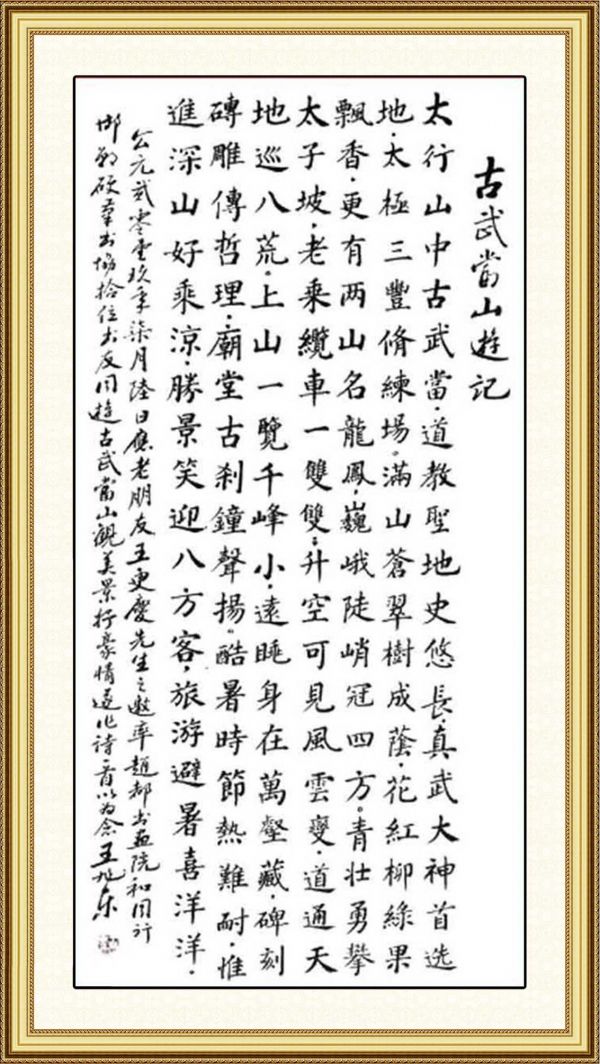 古武當山遊記
太行山中古武當·道教聖地史悠長·真武大神首選
地·太極三豐脩練場。滿山蒼翠樹成蔭·花紅柳綠果
飄香·更有两山名龍鳳·巍峨陡峭冠四方。青壮勇攀
太子坡·老乘纜車一雙雙·升空可見風雲變·道通天
地巡八荒。上山一覽千峰小·遠睡身在萬壑藏·碑刻
磚雕傳哲理·廟堂古刹鐘聲揚。酷暑時節熱難耐·惟
進深山好乘涼·勝景笑迎八方客·旅游避暑喜洋洋·
公元貳零壹玖年柒月陸日應老朋友王更慶先生之邀率趙都书画院和同行
邯鄲硬筆书協拾位书友同遊古武當山觀美景抒豪情遂作诗一首以为念王旭东